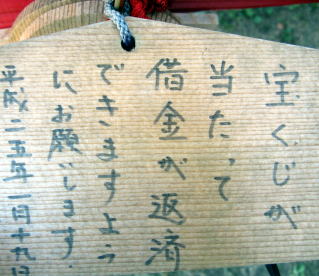 宝くじが
当たって
借金が返済
できますよう
にお願いします.
平成二五年一月十九日